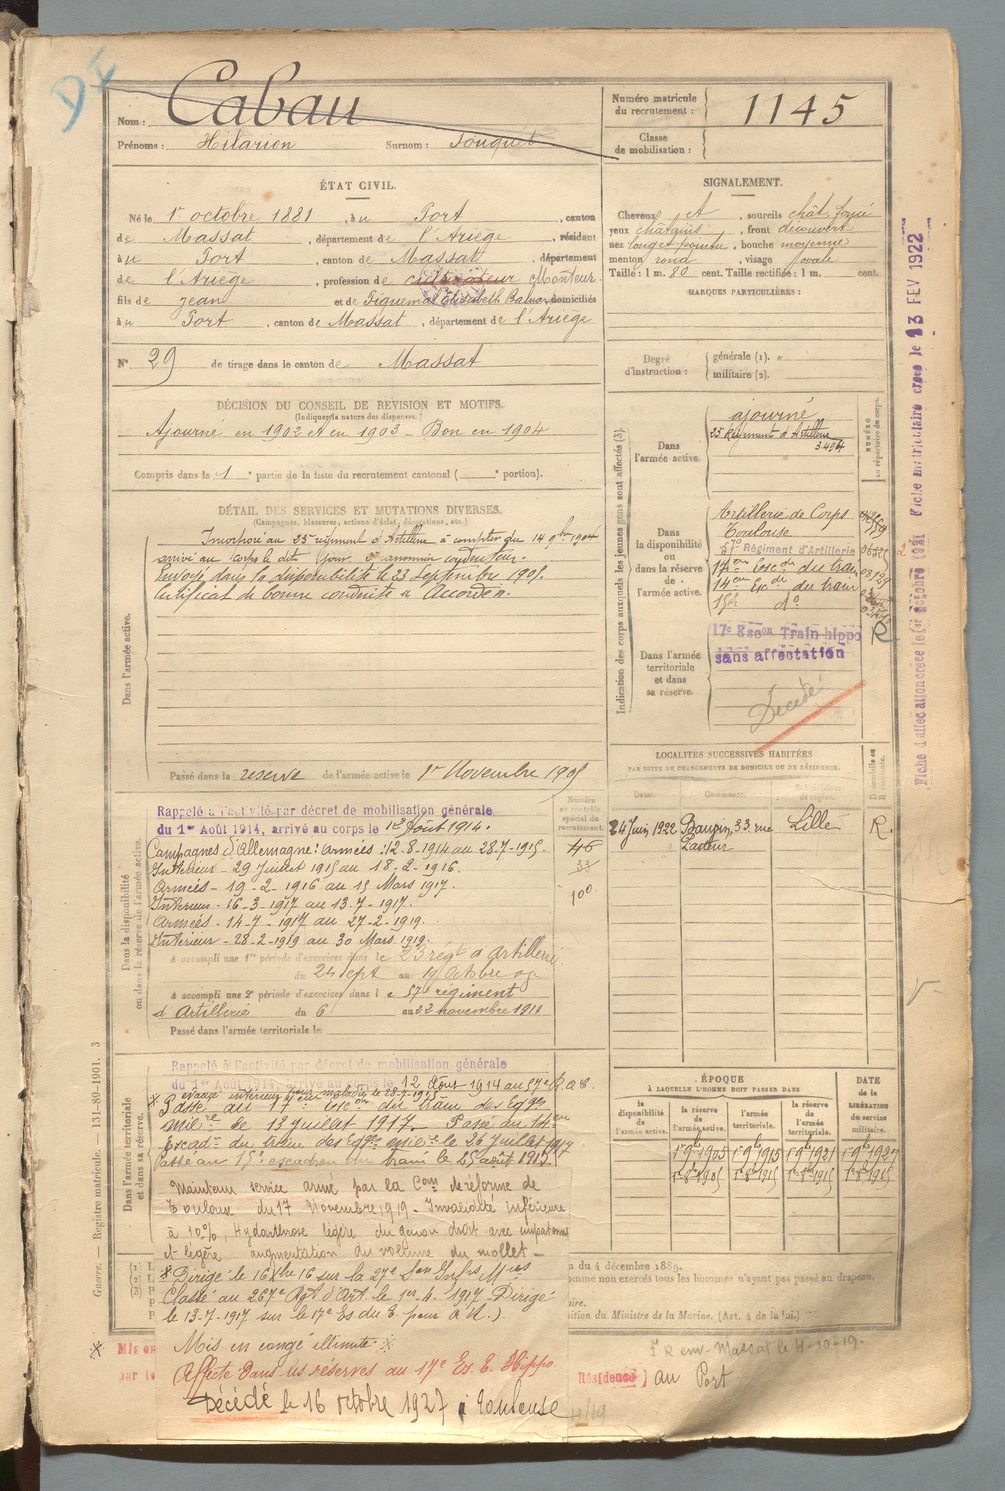 DI
Nom : Cabau
Prénoms : Hilarion Surnom : Touquet
Numéro matricule du recrutement : 1145
Classe de mobilisation :
ÉTAT CIVIL.
Né le 1er octobre 1881, à u Port, canton
de Massat, département de l'Ariège, résidant
à u Port, canton de Massat, département
de l'Ariège, profession de cultivateur Monteur
fils de Jean et de Piquemal Elisabeth domiciliés
à u Port, canton de Massat, département de l'Ariège
N° 29 de tirage dans le canton de Massat
SIGNALEMENT.
Cheveux et, sourcils chât. foncé
yeux châtains, front découvert
nez long et pointu, bouche moyenne
menton rond, visage ovale
Taille : 1 m. 80 cent. Taille rectifiée : 1 m. cent.
MARQUES PARTICULIÈRES :
Degré d'instruction : générale (1). "
militaire (2).
DÉCISION DU CONSEIL DE REVISION ET MOTIFS.
(Indiquer la nature des dispenses.)
Ajourné en 1902 et en 1903 – Bon en 1904
Compris dans la 1e partie de la liste du recrutement cantonal ( e portion).
DÉTAIL DES SERVICES ET MUTATIONS DIVERSES.
(Campagnes, blessures, actions d'éclat, décorations, etc.)
Dans l'armée active.
Incorporé au 23e régiment d'Artillerie à compter du 14 9bre 1904
arrivé au corps le dit jour, canonnier conducteur.
Envoyé dans la disponibilité le 23 Septembre 1905.
Certificat de bonne conduite « Accordé ».
Passé dans la réserve de l'armée active le 1er Novembre 1905
Indication des corps auxquels les jeunes gens sont affectés (3).
NUMÉRO au répertoire du corps.
Dans l'armée active.
ajourné
23e Régiment d'Artillerie
Dans la disponibilité ou dans la réserve de l'armée active.
Artillerie de Corps
Toulouse
57e Régiment d'Artillerie
14ème Escon du train
14ème Esc. du train
15e do
Dans l'armée territoriale et dans sa réserve.
17e Escon Train hippo R
sans affectation
Décédé
LOCALITÉS SUCCESSIVES HABITÉES
PAR SUITE DE CHANGEMENTS DE DOMICILE OU DE RÉSIDENCE.
Dates. Communes. Subdivisions de région. D domicile ou R résidence.
24 Juin 1922 Bauvin, 33 rue Pasteur Lille R.
Fiche matriculaire créée le 13 FEV 1922
Fiche d'affectation créée le 1er octobre 1921
Dans la disponibilité ou dans la réserve de l'armée active.
Numéro au contrôle spécial du recrutement.
46
33
100
Rappelé à l'activité par décret de mobilisation générale
du 1er Août 1914, arrivé au corps le 12 Août 1914.
Campagnes d'Allemagne : Armées : 12-8-1914 au 28-7-1915.
Intérieur - 29 Juillet 1915 au 18-2-1916.
Armées - 19-2-1916 au 15 Mars 1917.
Intérieur - 16-3-1917 au 13-7-1917.
Armées - 14-7-1917 au 27-2-1919.
Intérieur - 28-2-1919 au 30 Mars 1919.
A accompli une 1re période d'exercices dans le 23 régt d'Artillerie
du 24 Sept au
A accompli une 2e période d'exercices dans le 57e régiment
d'Artillerie du 6 au 22 novembre 1911
Passé dans l'armée territoriale le
Dans l'armée territoriale et dans sa réserve.
Rappelé à l'activité par décret de mobilisation générale
du 1er Août 1914, arrivé au corps le 12 Août 1914 au 57e R.A.C.
évacué intérieur malade le 28-7-1915
Passé au 17e Escon du train des Eqges
milre le 13 juillet 1917. – Passé du 14ème
Escadon du train des Eqges milre le 26 Juillet 1917
Passé au 15e escadron du train le 25 août 1917.
Maintenu service armé par la Com. de réforme de
Toulouse du 17 Novembre 1919 - Invalidité inférieure
à 10%, Hydarthrose légère du genou droit avec
et légère augmentation du volume du mollet –
Dirigé le 16 Xbre 16 sur la 27e Son Infirs Mres
Classé au 267e Rgt d'Art. le 1er-4-1917 Dirigé
le 13-7-1917 sur le 17e Es. du T. pour
Mis en congé illimité
Affecté dans les réserves au 17e Es. T. Hippo
Décédé le 16 octobre 1927 à Toulouse
ÉPOQUE
À LAQUELLE L'HOMME DOIT PASSER DANS
la disponibilité de l'armée active. la réserve de l'armée active. l'armée territoriale. la réserve de l'armée territoriale.
DATE DE LA LIBÉRATION du service militaire.
1er 9bre 1905 1er 9bre 1915 1er 9bre 1921 1er 9bre 1927
n du 4 décembre 1889.
omme non exercés tous les hommes n'ayant pas passé au drapeau.
sition du Ministre de la Marine. (Art. 4 de la loi.)
F R env. Massat le 4-10-19-
Résidence au Port
Guerre. — Registre matricule. 131-89-1901. 3